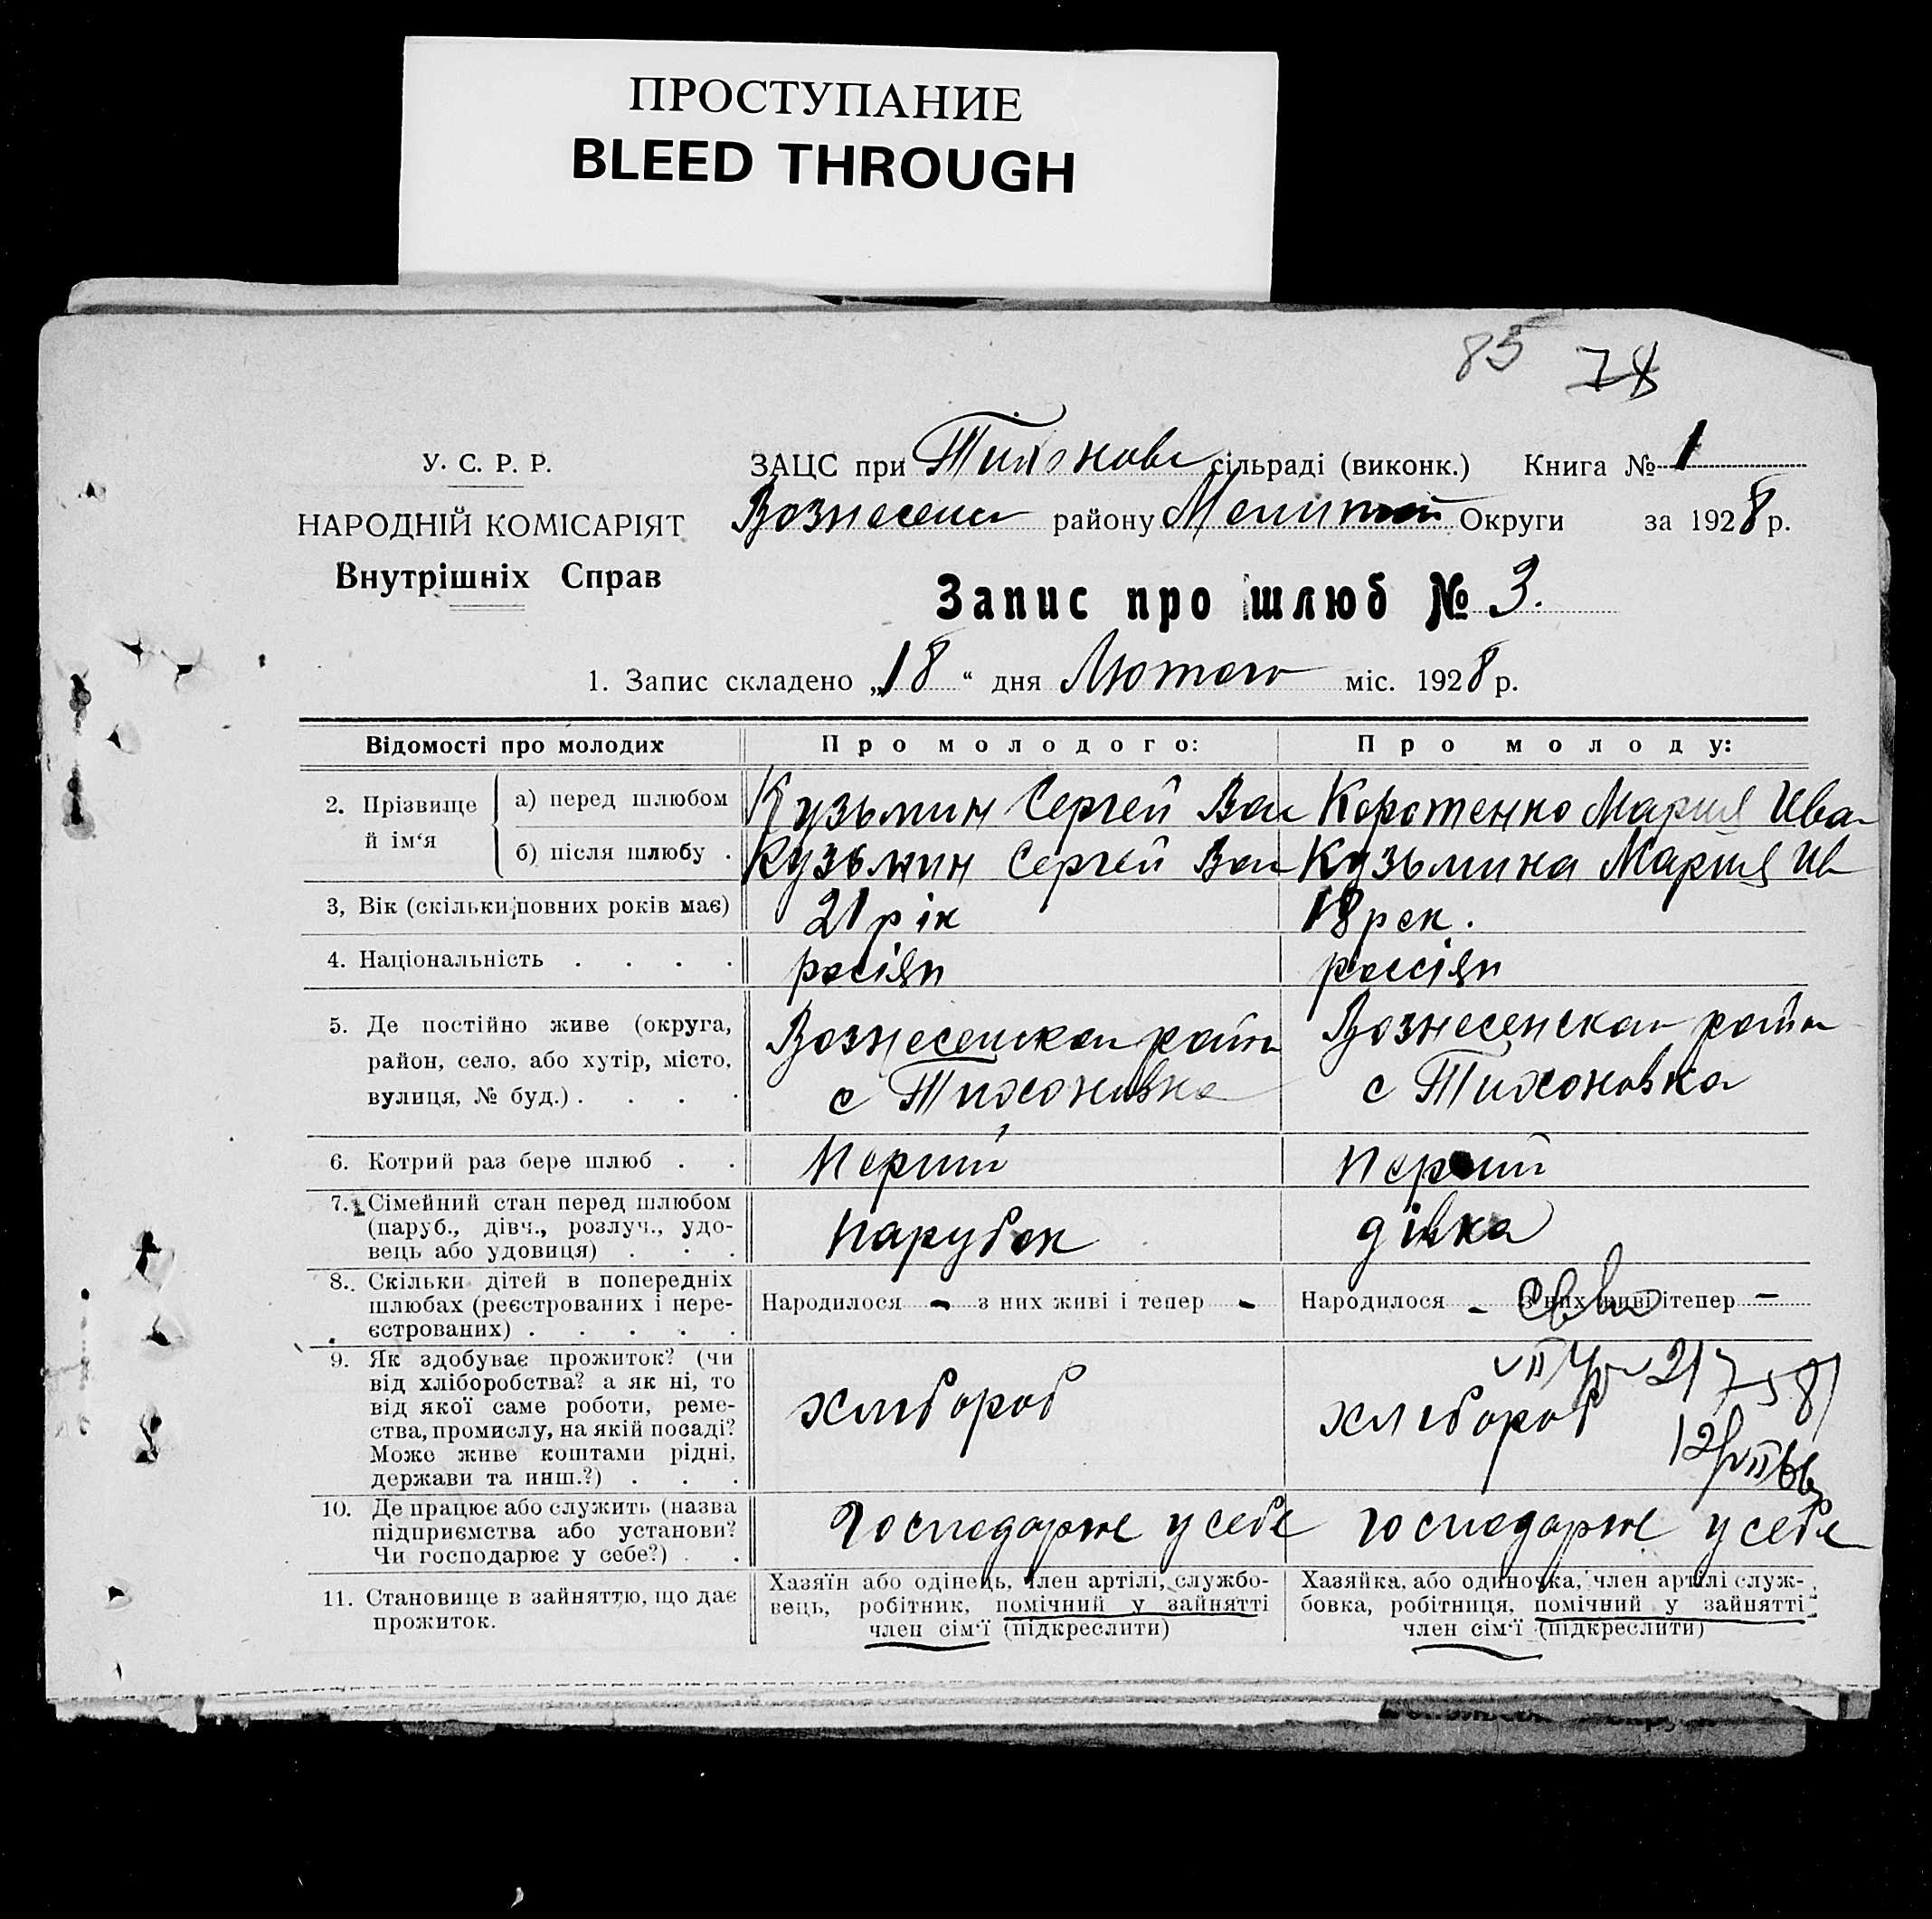 ПРОСТУПАНИЕ
BLEED THROUGH
85 78
У. С. Р. Р.
НАРОДНІЙ КОМІСАРІЯТ
Внутрішніх Справ
ЗАЦС при Тихонов сільраді (виконк.) Книга № 1
Вознесен району Мелитоп Округи за 1928 р.
Запис про шлюб № 3.
1. Запис складено „18“ дня Лютого міс. 1928 р.
Відомості про молодих Про молодого: Про молоду:
2. Прізвище й ім‘я
а) перед шлюбом Кузьмин Сергей Вас Коротенко Мария Ива
б) після шлюбу . Кузьмин Сергей Вас Кузьмина Мария Ив
3, Вік (скільки повних років має) 21 рік 18 рок.
4. Національність . . . . росіян россіян
5. Де постійно живе (округа,
район, село, або хутір, місто,
вулиця, № буд.) . . . .
Вознесенскаи район
с Тихоновка
Вознесенскаи район
с Тихоновка
6. Котрий раз бере шлюб . . Перший перший
7. Сімейний стан перед шлюбом
(паруб., дівч., розлуч., удо-
вець або удовиця) . . .
парубок дівка
8. Скільки дітей в попередніх
шлюбах (реєстрованих і нере-
єстрованих) . . . . .
Народилося - з них живі і тепер -
Народилося - з них живі ітепер -
9. Як здобуває прожиток? (чи
від хліборобства? а як ні, то
від якої саме роботи, реме-
ства, промислу, на якій посаді?
Може живе коштами рідні,
держави та инш.?) . . .
хлибороб хлебороб
10. Де працює або служить (назва
підприємства або установи?
Чи господарює у себе?) . .
господарює у себе господарює у себе
11. Становище в зайняттю, що дає
прожиток.
Хазяїн або одінець, член артілі, службо-
вець, робітник, помічний у зайнятті
член сім‘ї (підкреслити)
Хазяйка, або одиночка, член артілі служ-
бовка, робітниця, помічний у зайнятті
член сім‘ї (підкреслити)